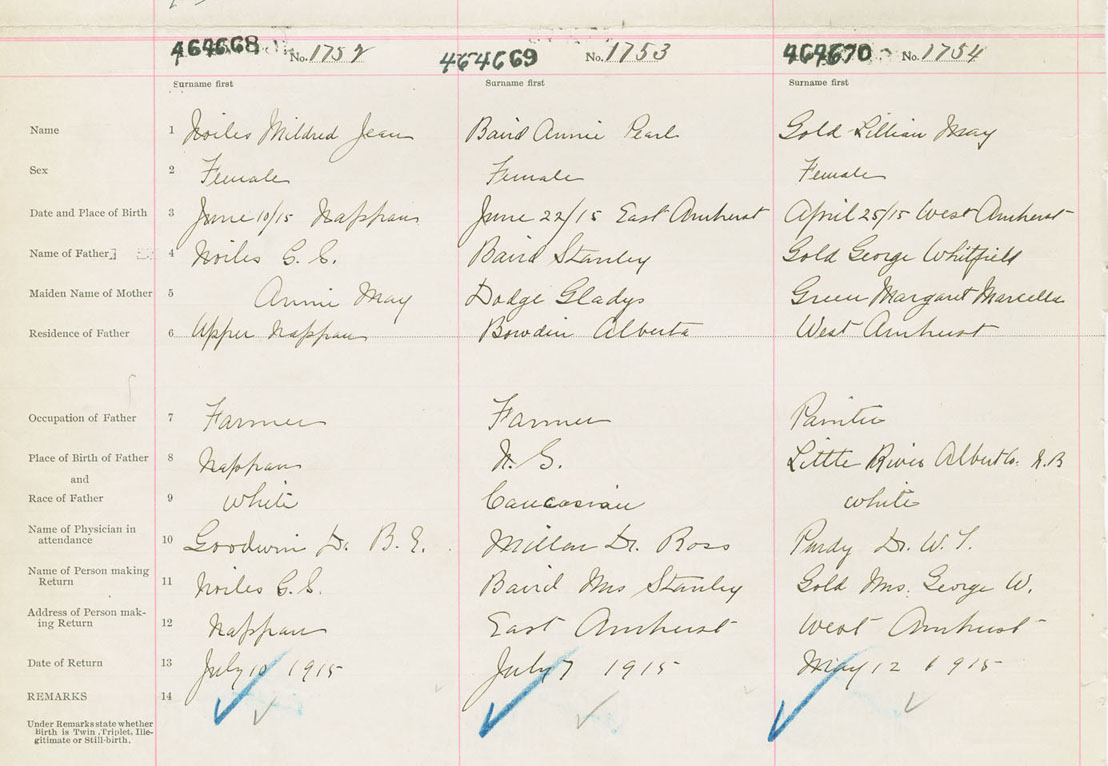 464668 No. 1752 464669 No. 1753 464670 No. 1754
Surname first Surname first Surname first
Name 1 Noiles Mildred Jean Baird Annie Pearl Gold Lillian May
Sex 2 Female Female Female
Date and Place of Birth 3 June 10/15 Nappan June 22/15 East Amherst April 25/15 West Amherst
Name of Father 4 Noiles C. S. Baird Stanley Gold George Whitfield
Maiden Name of Mother 5 Annie May Dodge Gladys Green Margaret Marcella
Residence of Father 6 Upper Nappan Bowden Alberta West Amherst
Occupation of Father 7 Farmer Farmer Painter
Place of Birth of Father 8 Nappan N. S. Little River Albert Co. N.B
and
Race of Father 9 White Caucasian White
Name of Physician in
attendance 10 Goodwin Dr. B. E. Millar Dr. Ross Purdy Dr. W. T.
Name of Person making
Return 11 Noiles C. S. Baird Mrs Stanley Gold Mrs. George W.
Address of Person mak-
ing Return 12 Nappan East Amherst West Amherst
Date of Return 13 July 10 1915 July 7 1915 May 12 1915
REMARKS 14
Under Remarks state whether
Birth is Twin, Triplet, Ille-
gitimate or Still-birth.